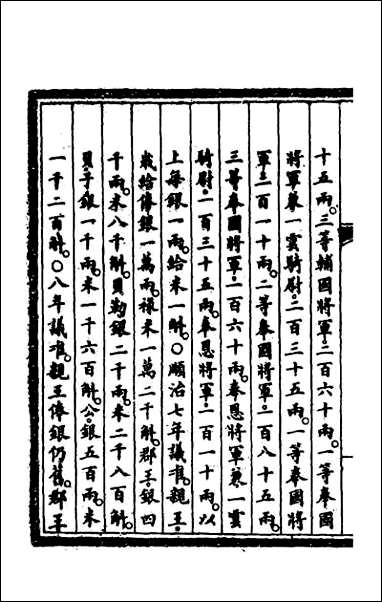 十五兩。三等輔國將軍。二百六十兩。一等奉國
將軍兼一雲騎尉。二百三十五兩。一等奉國將
軍。二百一十兩。二等奉國將軍。一百八十五兩。
三等奉國將軍。一百六十兩。奉恩將軍兼一雲
騎尉。一百三十五兩。奉恩將軍。一百一十兩。以
上每銀一兩。給米一斛。○順治七年議准。親王。
歲給俸銀一萬兩。祿米一萬二千斛。郡王銀四
千兩。米八千斛。貝勒銀二千兩。米二千八百斛。
貝子銀一千兩。米一千六百斛。公。銀五百兩。米
一千二百斛。○八年議准。親王俸銀仍舊。郡王